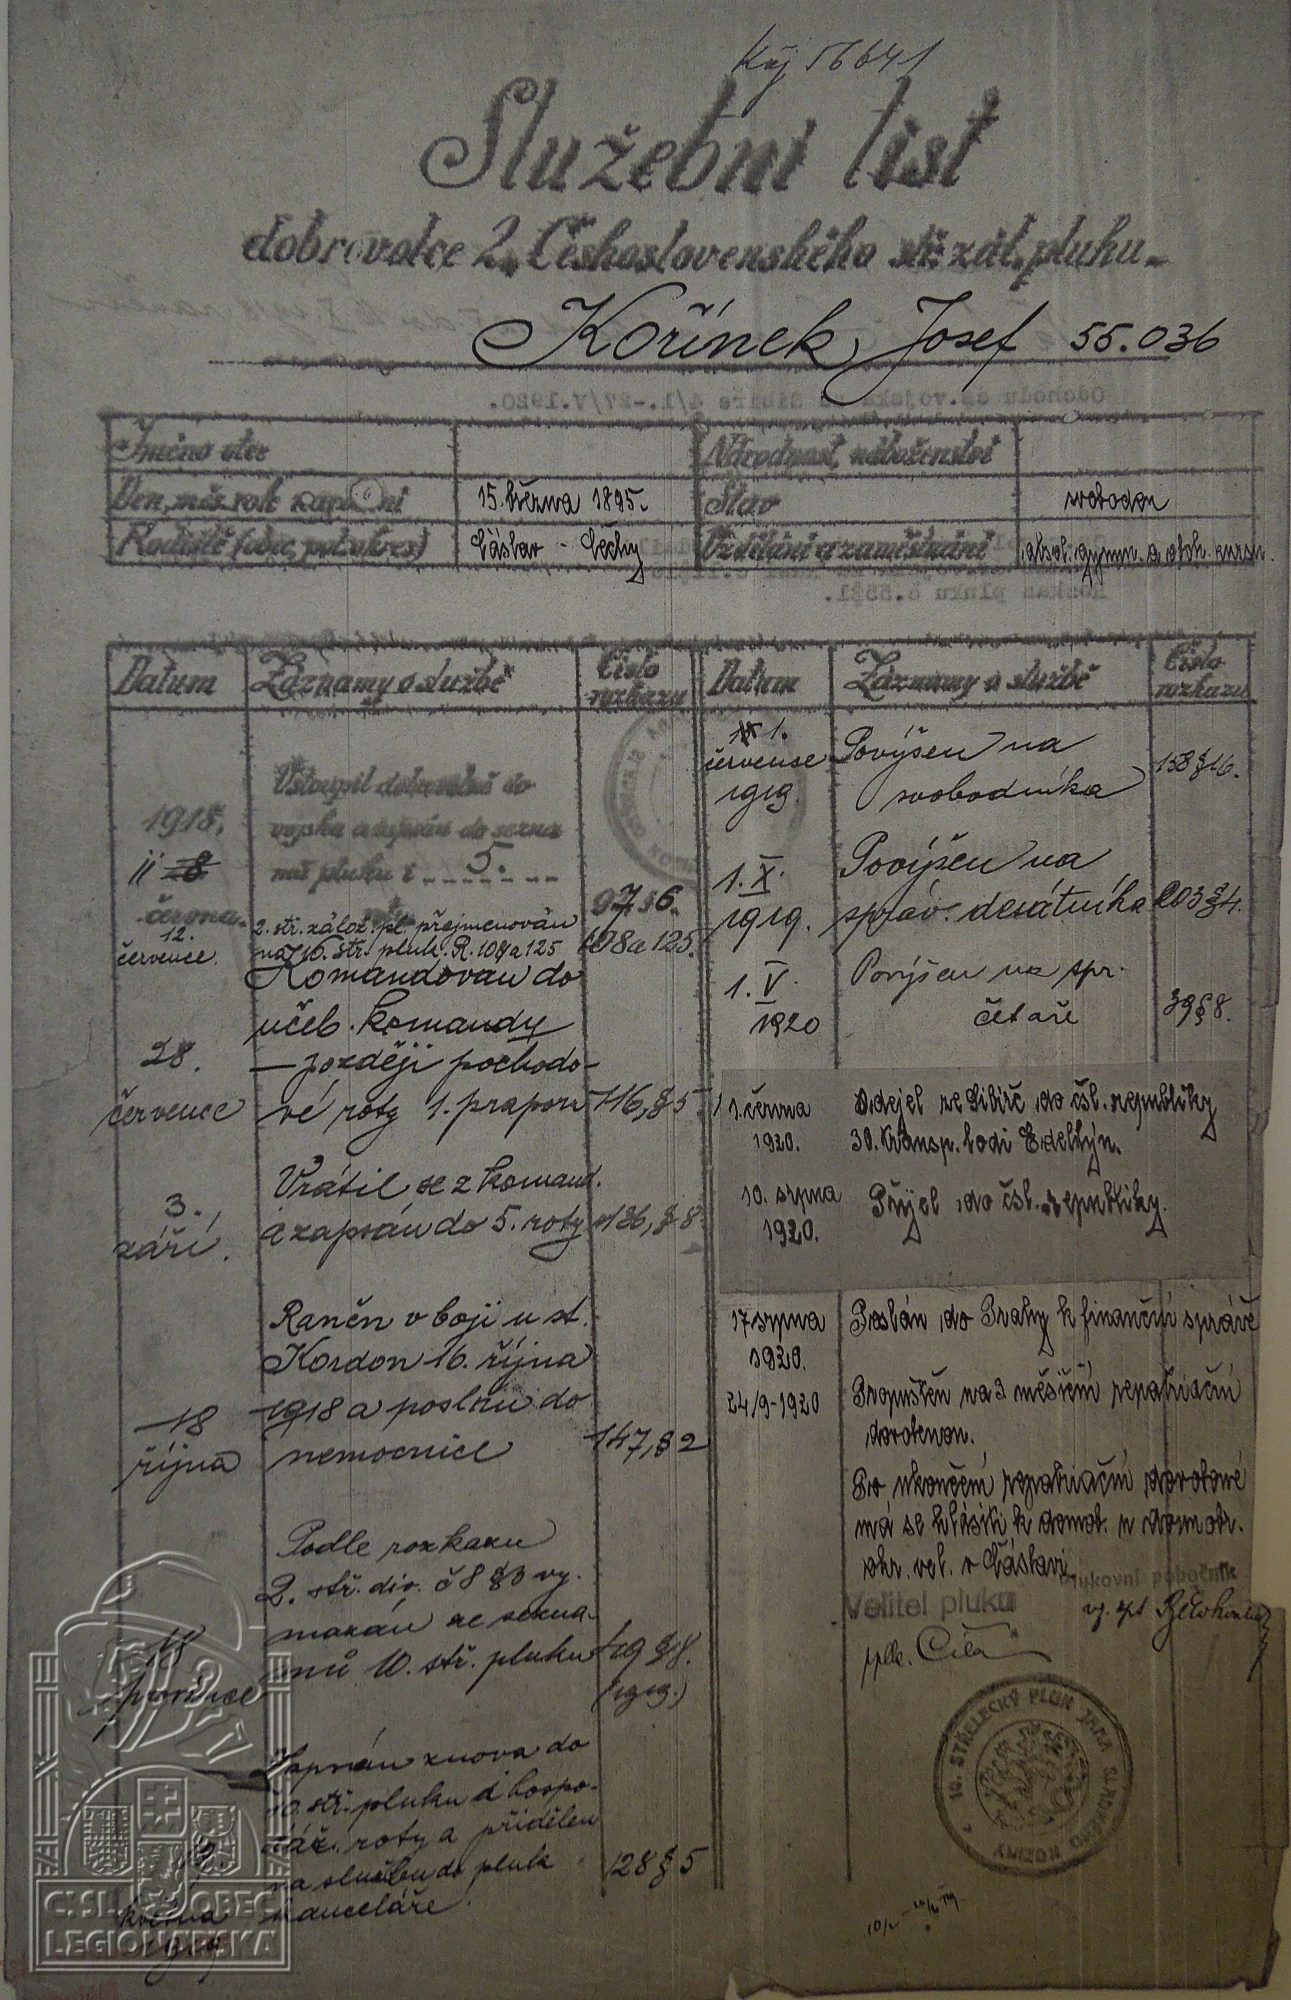 Služební list
dobrovolce 2. Československého stř. zál. pluku
Kořínek, Josef 55.036
Odchodu čs. vojska na Sibiři 4/1.-27/V.1920.
Jméno otce
Národnost, náboženství
Den, měs. rok narození
15. března 1895.
Stav
svoboden
Rodiště (obec, pol. okres)
Čáslav - Čechy
Vzdělání a zaměstnání
absol. gymn. a obch. kursu.
Datum
Záznamy o službě
Číslo rozkazu
Datum
Záznamy o službě
Číslo rozkazu
1918,
11 8
června.
Vstoupil dobrovolně do
vojska a zapsán do sezna
mu pluku i 5.
97 § 6.
12.
července.
2. stř. zálož. pl. přejmenován
na 10. stř. pluk. R. 108 a 125
108 a 125.
28.
července
Komandován do
učeb. komandy
– později pochodo-
vé roty 1. praporu
116, § 5
3.
září.
Vrátil se z komand.
a zapsán do 5. roty
136, § 8
18
října
Raněn v boji u st.
Kordon 16. října
1918 a poslán do
nemocnice
147, § 2
18
prosince
Podle rozkazu
2. stř. div. č 8 § 3 vy-
mazán ze sezna-
mů 10. stř. pluku
19 § 18.
(1919.)
května
1919
Zapsán znova do
10. stř. pluku k hospo-
dář. roty a přidělen
na službu do pluk
kanceláře.
128 § 5
1.
července
1919.
Povýšen na
svobodníka
158 § 16.
1. X.
1919.
Povýšen na
správ. desátníka
203 § 4.
1. V.
1920
Povýšen na spr.
četaře
39 § 8.
1. června
1920.
Odejel ze Sibiře do čsl. republiky
30. transp. lodi Edellyn.
10. srpna
1920.
Přijel do čsl. republiky.
17 srpna
1920.
Poslán do Prahy k finanční správě
24/9-1920
Propuštěn na 3 měsíční repatriační
dovolenou.
Po ukončení repatriační dovolené
má se hlásiti k demob. u dom. obr.
okr. vel. v Čáslavi
Velitel pluku
plukovní pobočník
pplk. Číla
10. STŘELECKÝ PLUK JANA SLADKÉHO KOZINY
Č.SL. OBEC
LEGIONÁŘSKÁ